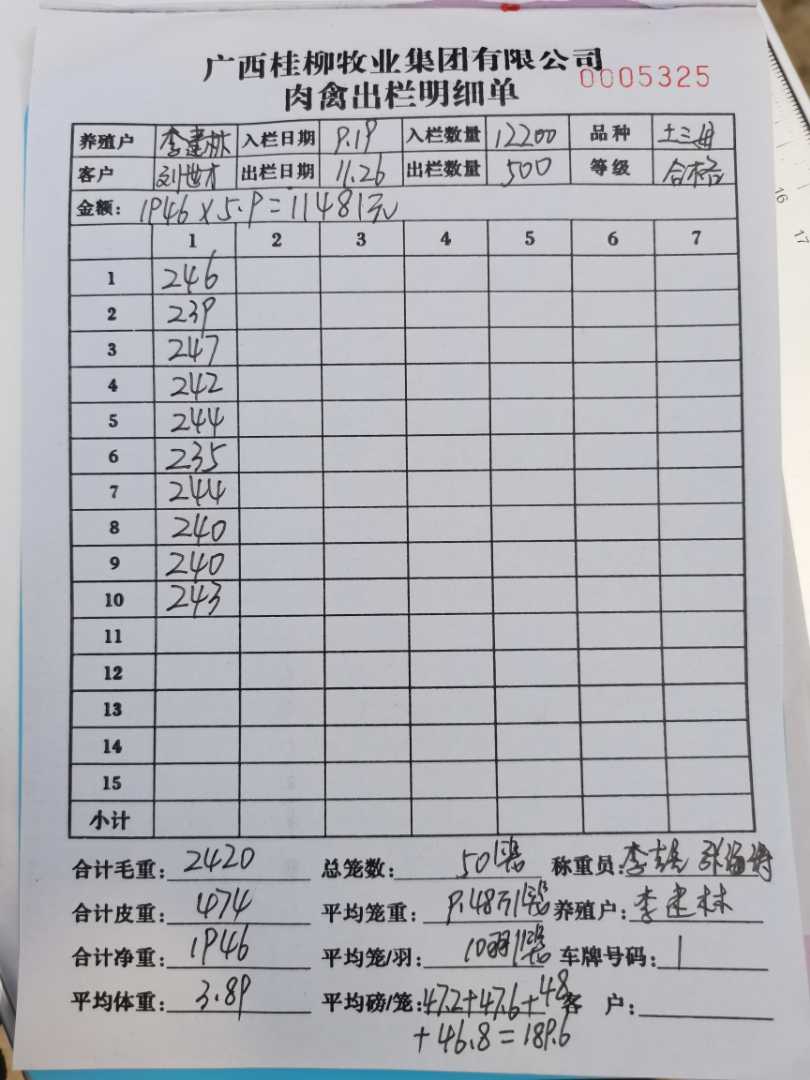 广西桂柳牧业集团有限公司
0005325
肉禽出栏明细单
养殖户 李建林 入栏日期 9.19 入栏数量 12200 品种 土三母
客户 刘世才 出栏日期 11.26 出栏数量 500 等级 合格
金额: 1946×5.9=11481元
1 2 3 4 5 6 7
1 246
2 239
3 247
4 242
5 244
6 235
7 244
8 240
9 240
10 243
11
12
13
14
15
小计
合计毛重: 2420 总笼数: 50 称重员: 李
合计皮重: 474 平均笼重: 9.48 养殖户: 李建林
合计净重: 1946 平均笼/羽: 10羽 车牌号码:
平均体重: 3.89 平均磅/笼: 47.2+47.6+48 客 户:
+46.8=189.6
16
17